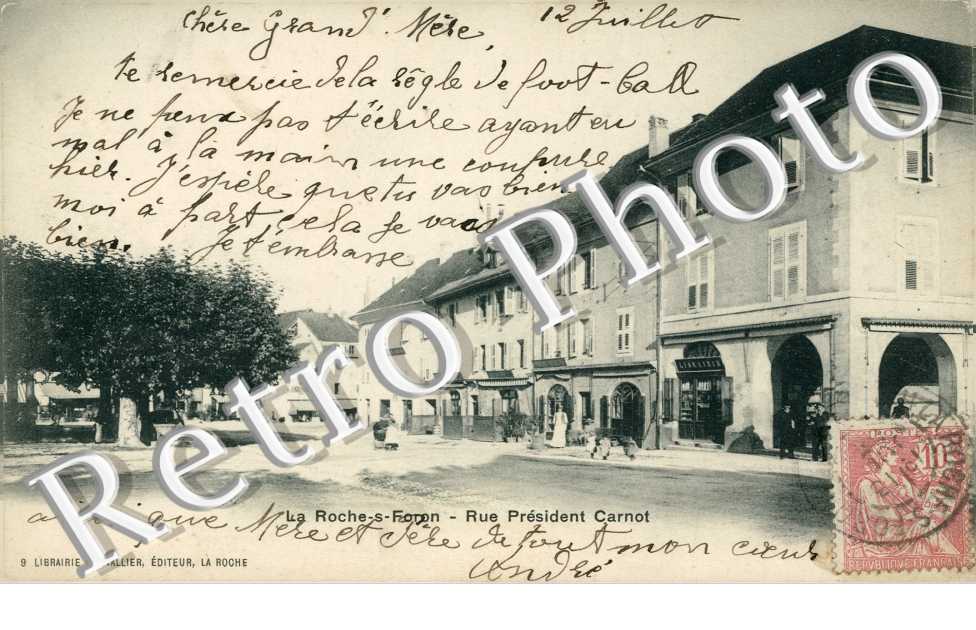 Chère Grand' Mère, 12 Juillet
Je remercie de la règle de foot-ball
Je ne peux pas t'écrire ayant eu
mal à la main une coupure
hier. J'espère que tu vas bien
moi à part cela je vais
bien. Je t'embrasse
Retro Photo
LIBRAIRIE
La Roche-s-Foron - Rue Président Carnot
ainsi que Mère et Père de tout mon cœur
André
9 LIBRAIRIE ALLIER, ÉDITEUR, LA ROCHE
POSTES
10
RÉPUBLIQUE FRANÇAISE